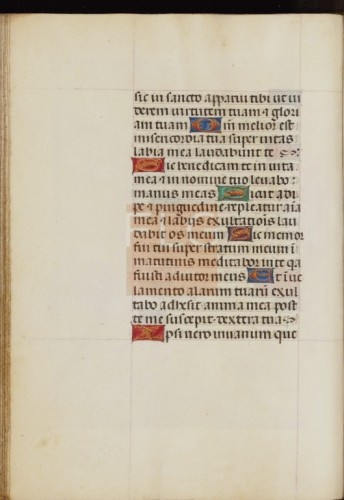 sic in sancto apparui tibi ut vi
derem virtutem tuam & glori
am tuam Qm melior est
misericordia tua super vitas
labia mea laudabunt te
Sic benedicam te in vita
mea & in nomine tuo levabo
manus meas Sicut adi
pe & pinguedine repleatur aīa
mea & labiis exultationis lau
dabit os meum Sic memor
fui tui super stratum meum ī
matutinis meditabor in te qa
fuisti adiutor meus Et ī ve
lamento alarum tuarū exul
tabo adhesit anima mea post
te me suscepit dextera tua
Ipsi vero in vanum que